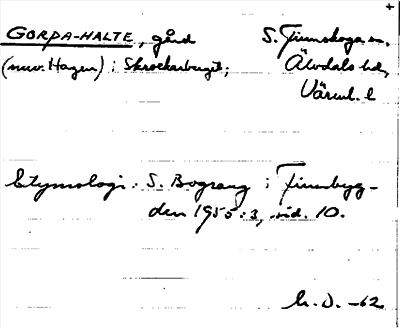 +
GORPA-HALTE, gård S. Finnskoga sn.
(nuv. Hagen) i Skrockarberget; Älvdals hd,
Värml. l
Etymologi: S. Bograng i Finnbyg-
den 1955:3, sid. 10.
h. D. -62